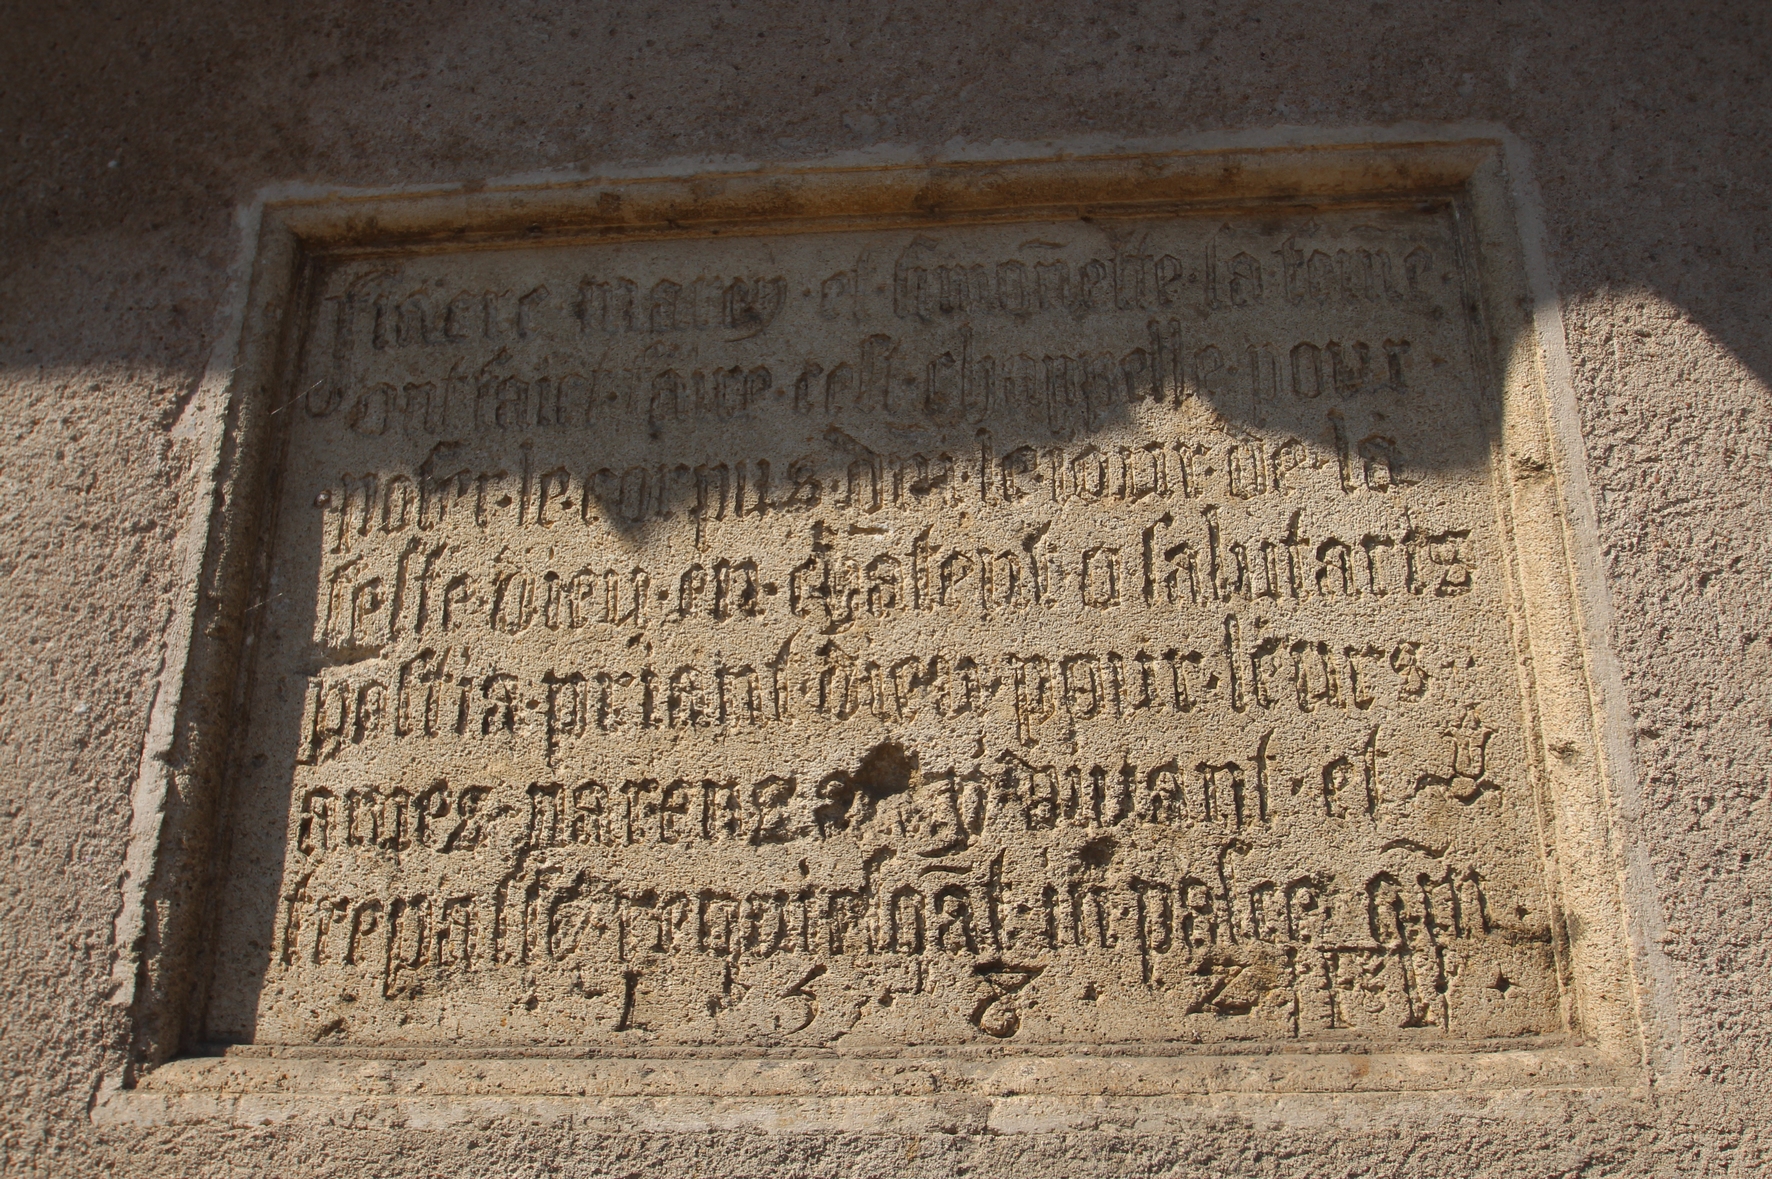 fiacre · marey · et · simōnette · la · feme ·
ont · faict · faire · cest · chappelle · pour
poser · le · corpus · dni · le · iour · de · la
feste · dieu · en · chātent · o salutaris
hostia · prient · dieu · pour · leurs ·
ames · parens · vivant · et
trepasse · requiescāt · in · pasce · amē
1 · 5 · 8 · 2